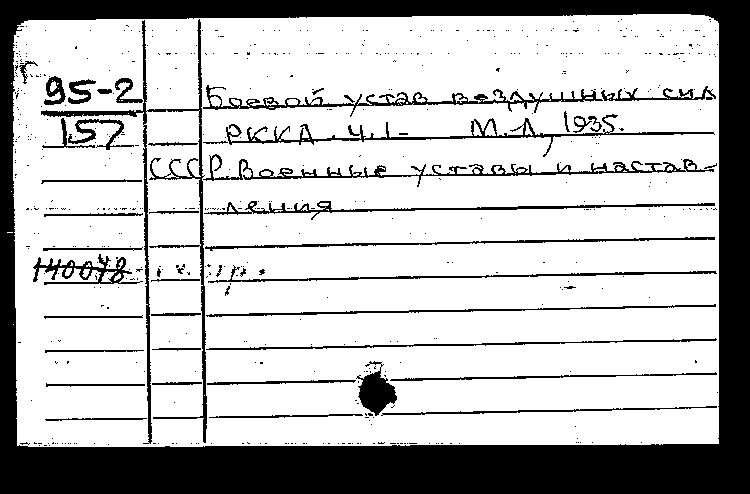 95-2
157
Боевой устав воздушных сил
РККА. Ч.1- М.Л., 1935.
СССР. Военные уставы и настав-
ления
140078